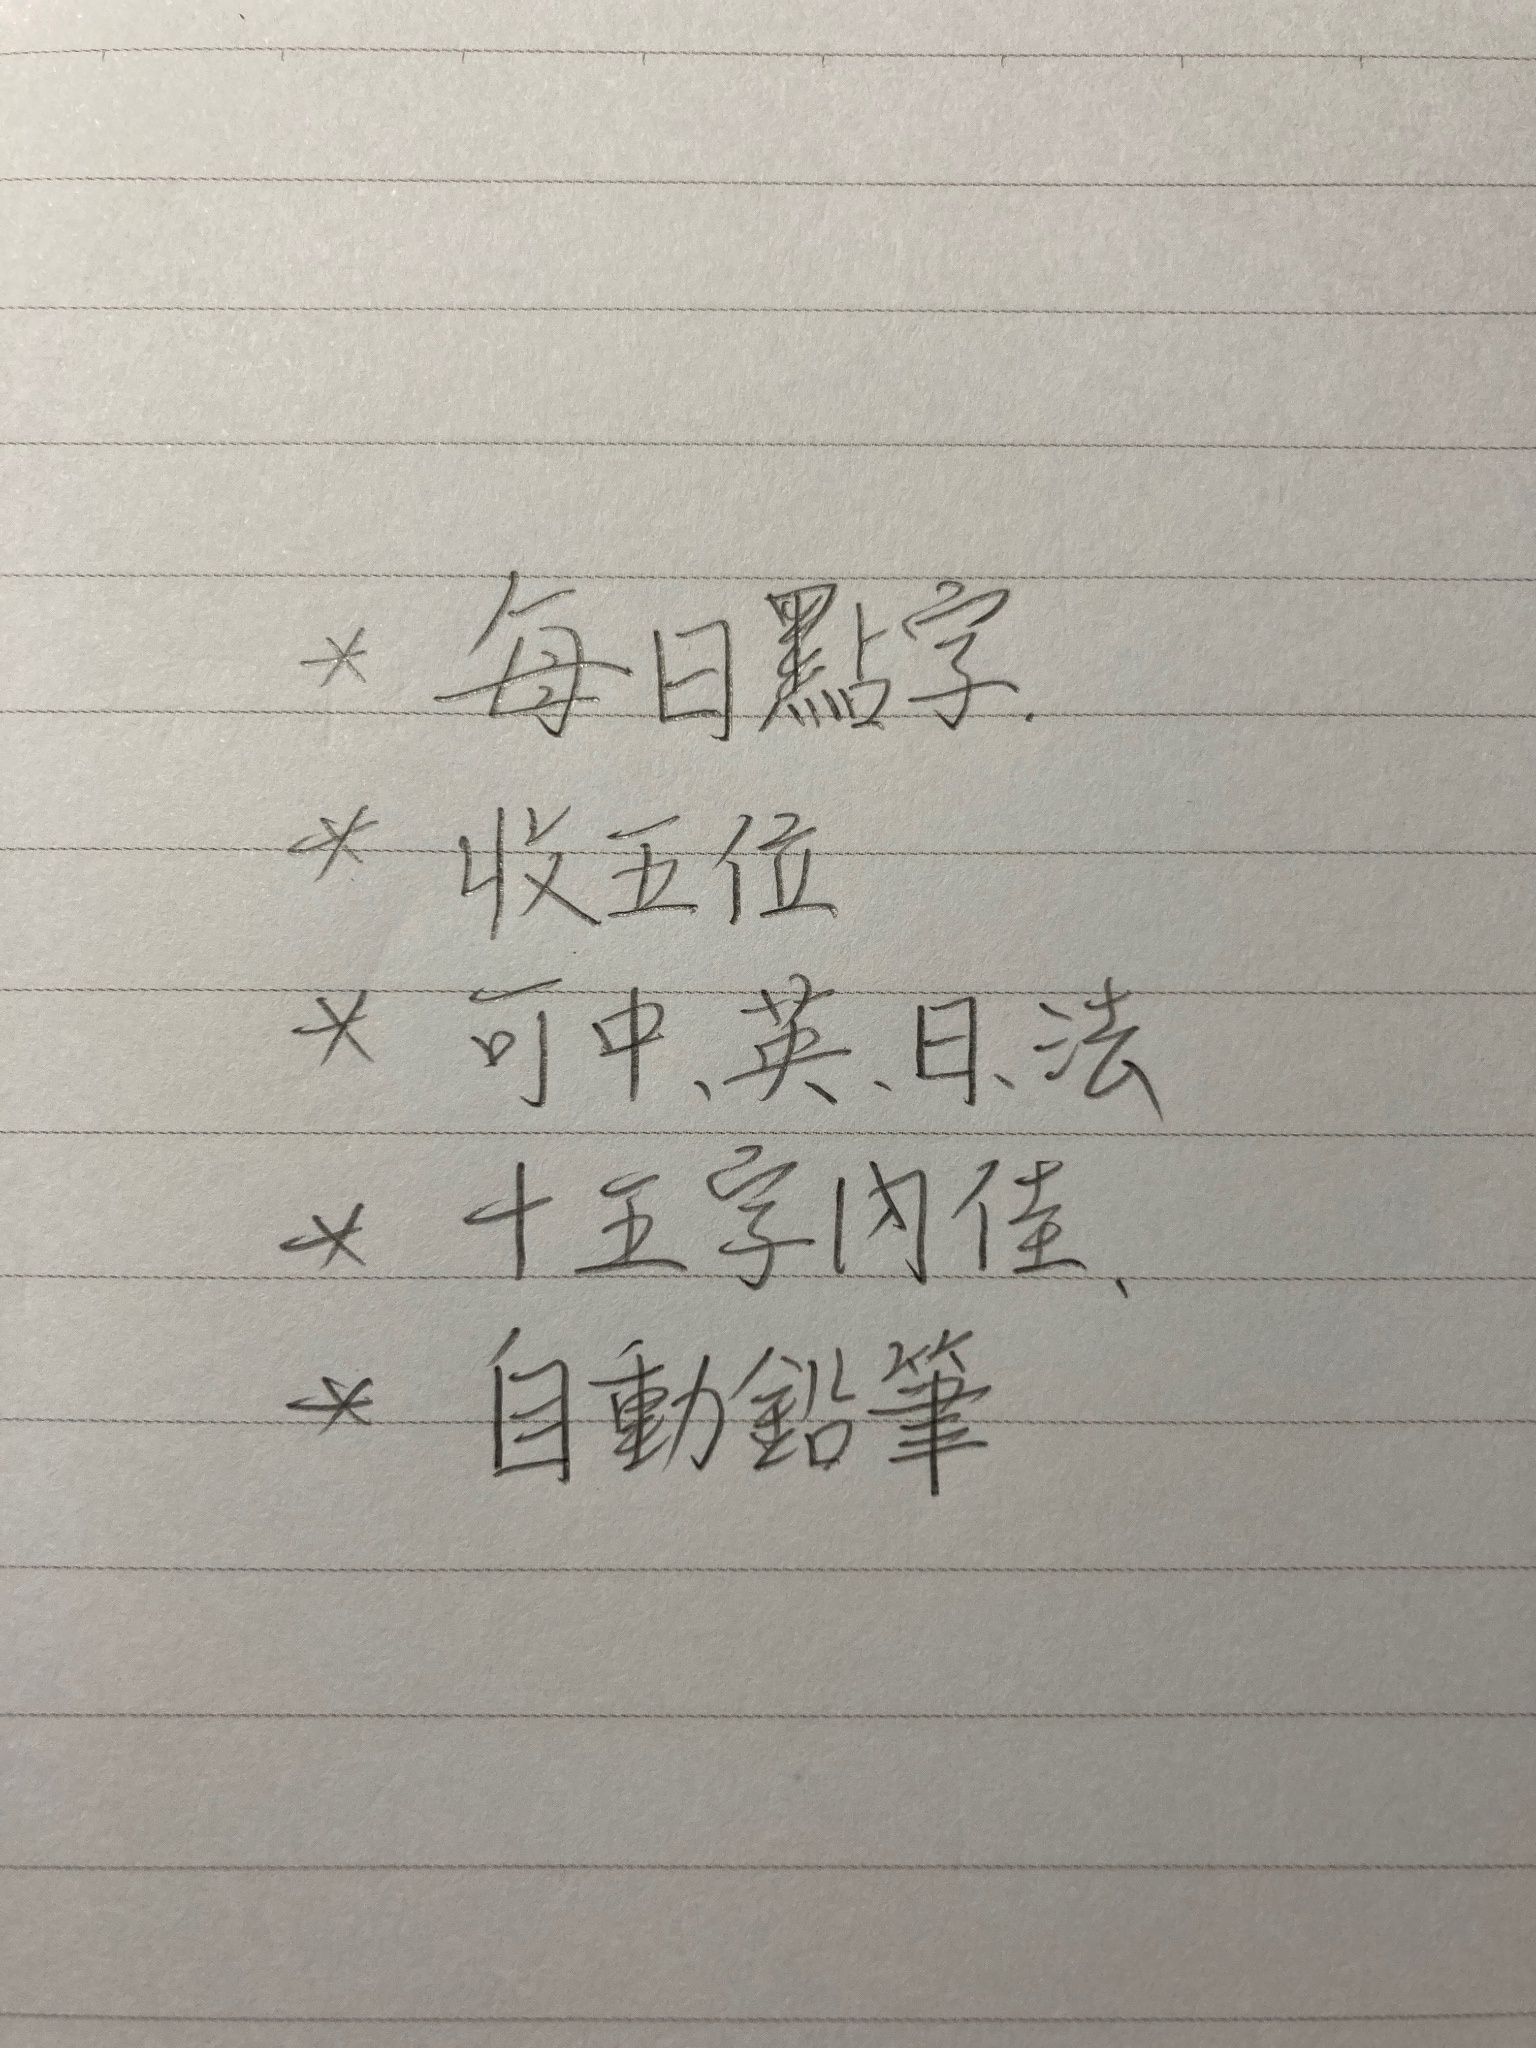 * 每日點字.
* 收五位
* 可中、英、日、法
* 十五字內佳、
* 自動鉛筆